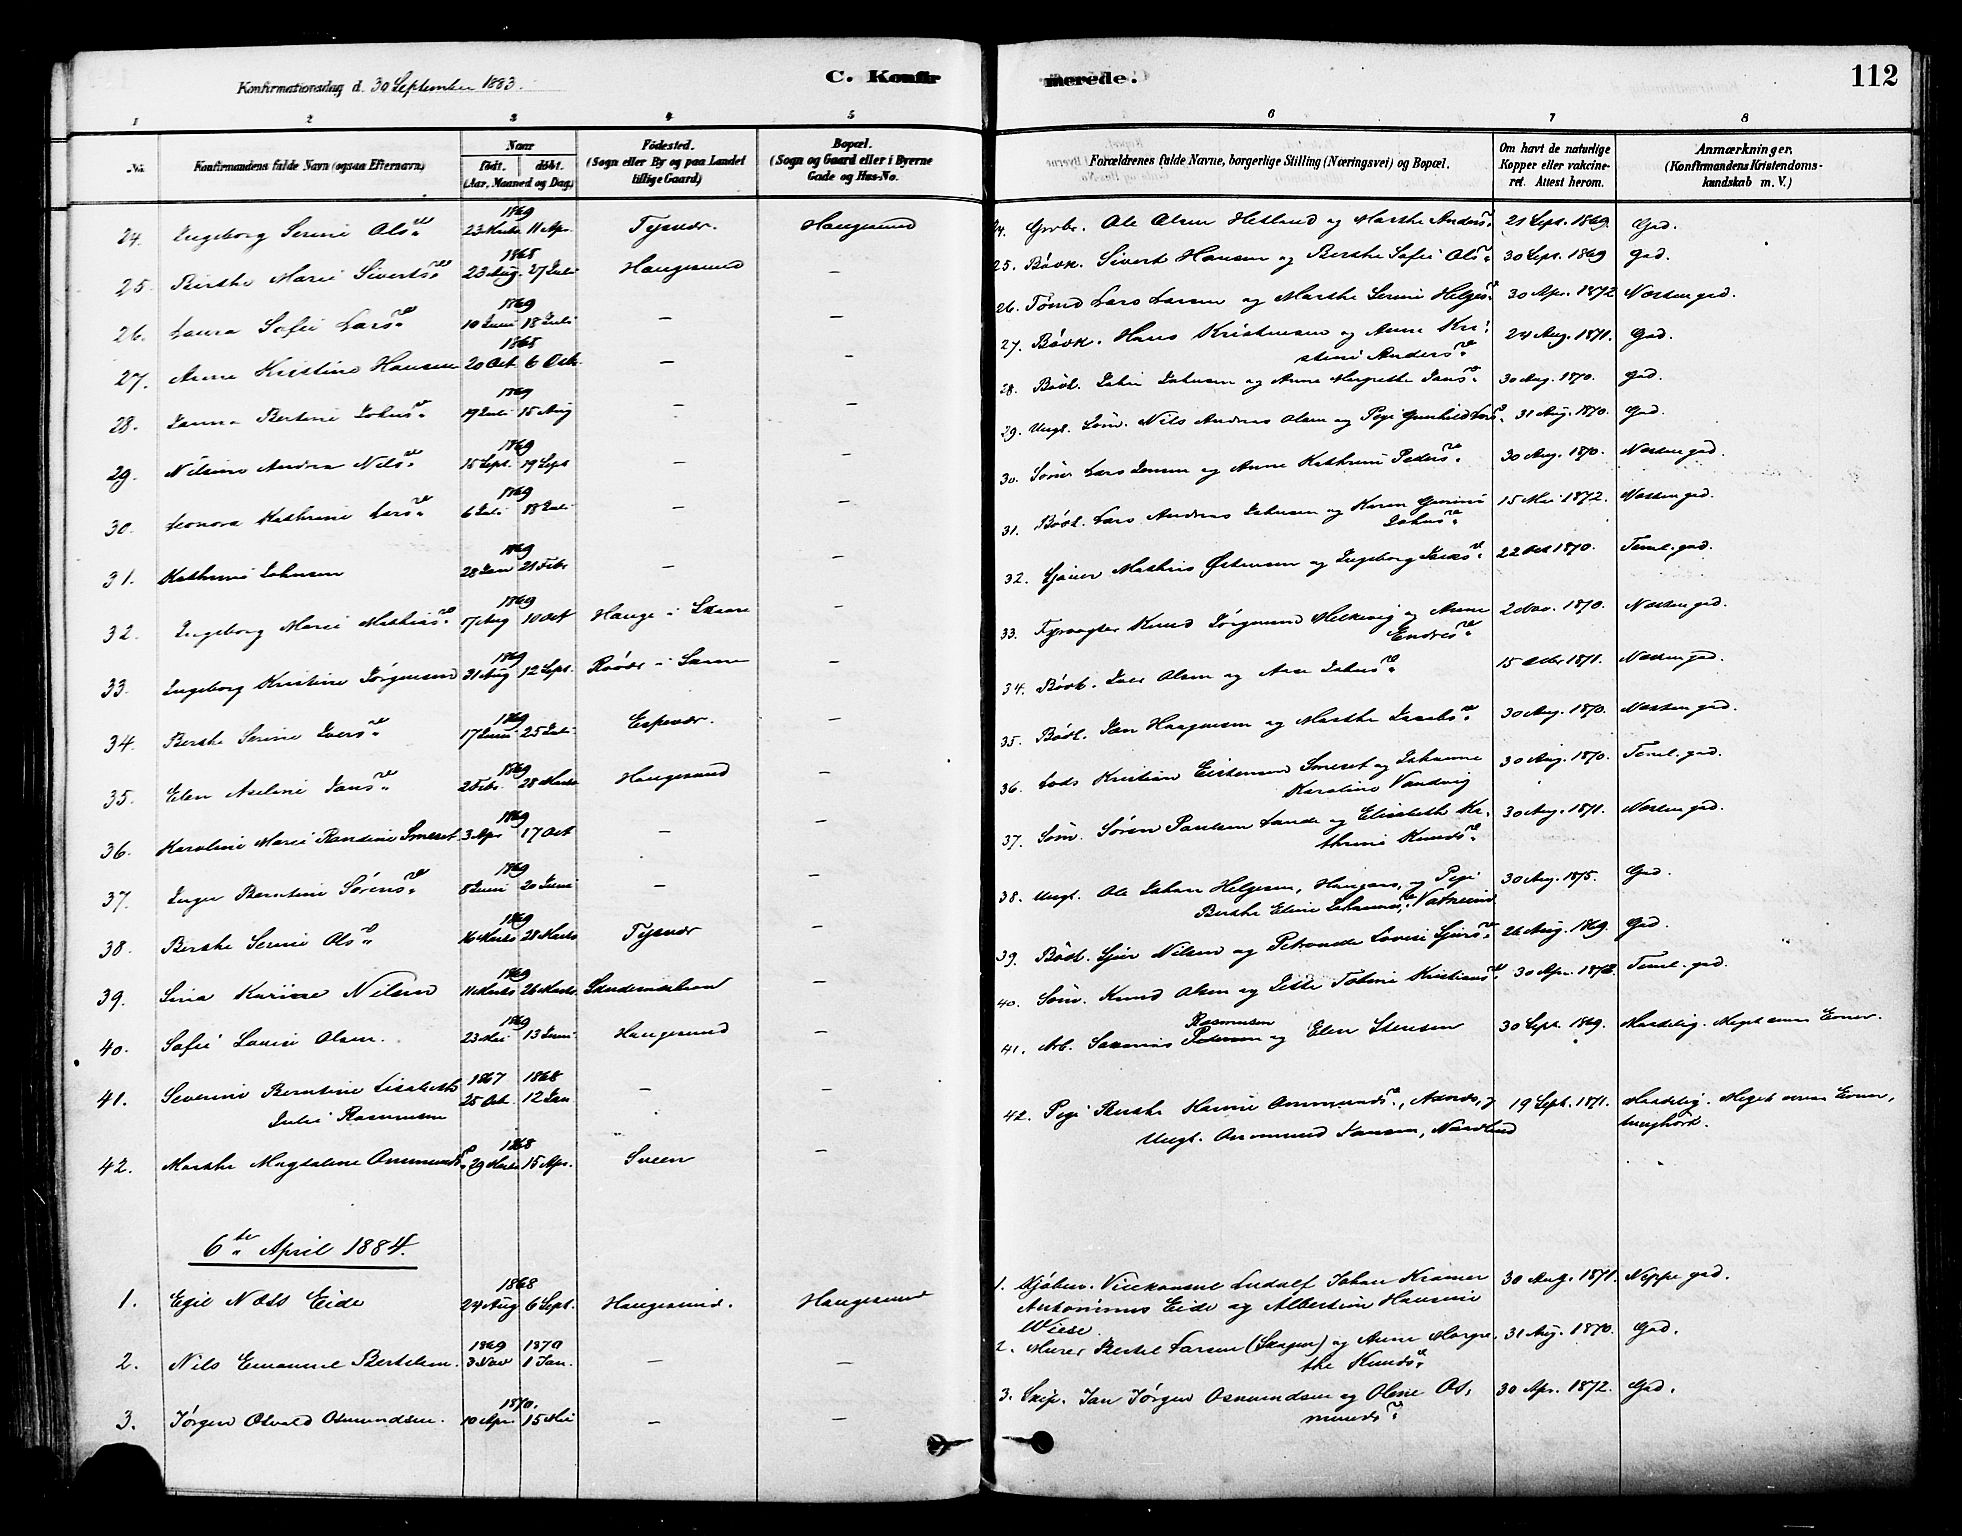 Konfirmationsdag d. 30 September 1883.
C. Konfirmerede.
112
1 2 3 4 5 6 7 8
No.
Konfirmandens fulde Navn (ogsaa Efternavn)
Naar
født. døbt.
(Aar, Maaned og Dag)
Fødested.
(Sogn eller By og paa Landet
tillige Gaard)
Bopæl.
(Sogn og Gaard eller i Byerne
Gade og Hus-No.
Forældrenes fulde Navne, borgerlige Stilling (Næringsvei) og Bopæl.
Om havt de naturlige
Kopper eller vakcine-
ret. Attest herom.
Anmærkninger.
(Konfirmandens Kristendoms-
kundskab m. V.)
1869
24. Ingeborg Serine Olsd. 23 Marts 11 Apr. Tysvær. Haugesund
24. Ole Olsen Hetland og Marthe Andersd. 21 Sept. 1869 God.
1868
25. Berthe Marie Sivertsd. 23 Aug. 27 Haugesund —
25. Bødk. Sivert Hansen og Berthe Sofie Olsd. 30 Sept. 1869 God.
1869
26. Laura Sofie Larsd. 10 Juni 18 Juli — —
26. Tømd Lars Larsen og Marthe Serine Helgesd. 30 Apr. 1872 Næsten god.
1868
27. Anne Kristine Hansen 20 Oct. 6 — —
27. Bødk. Hans Kristensen og Anne Kri-
stine Andersd. 24 Aug. 1871. God.
1869
28. Janna Bertine Johnsd. 19 Juli 15 Aug — —
28. Bødk. John Johnsen og Anne Margrethe Jansd. 30 Aug. 1870. God.
1869
29. Nilsine Andrea Nilsd. 15 Sept. 19 Sept — —
29. Ungk. Søm. Nils Andreas Olsen og Pige Gunhild Larsd. 31 Aug. 1870. God.
1869
30. Leonora Kathrine Larsd. 6 Juli 18 Juli — —
30. Søm. Lars Jensen og Anne Kathrine Pedersd. 30 Aug. 1870. Næsten god.
1869
31. Kathrine Johnsen 28 Jan 21 Febr — —
31. Bødk. Lars Andreas Johnsen og Karen
Johnsd. 15 Mai 1872. Næsten god.
1869
32. Ingeborg Marie Mathiasd. 17 Aug 10 Oct Hauge i Skaare —
32. Mathias Østensen og Ingeborg 22 Oct 1870. Teml. god.
1869
33. Ingeborg Kristine Jørgensen 31 Aug 12 Sept. —
33. Fyrvogter Knud Jørgensen og Anne
Endresd. 2 Nov. 1870. Næsten god.
1869
34. Berthe Serine Iversd. 17 Juni 25 Juli Espevær. —
34. Bødk. Iver Olsen og Ane Johnsd. 1871. Næsten god.
1869
35. Elen Aseline Jansd. 2 Febr. 28 Marts Haugesund —
35. Bødk. Jan Haagensen og Marthe Jacobsd. 30 Aug. 1870. Næsten god.
1869
36. Karoline Marie Randine Smeset. 3 Apr 17 Oct — —
36. Lods Kristian Eistensen Smeset og Johanne
Karoline Vandvig 30 Aug. 1870. Teml. god.
1869
37. Inger Berntine Sørensd. 8 Juni 20 Juni — —
37. Søm. Søren Paulsen Lande og Elisabeth Ka-
thrine Knudsd. 30 Aug. 1871. Næsten god.
1869
38. Berthe Serine Olsd. 16 Marts 28 Marts Tysvær —
38. Ungk. Ole Johan Helgesen, og Pige
Berthe Eline 30 Aug. 1875. God.
1869
39. Sina Karine Nilsen 11 Marts 26 Marts Skudesneshavn —
39. Bødk. Sjur Nilsen og Petronelle Lovise Sjursd. 26 Aug. 1869. God.
1869
40. Sofie Lovise Olsen. 23 Mai 13 Juni Haugesund —
40. Søm. Knud Olsen og Jette Tobine Kristiansd. 30 Apr. 1872. Teml. god.
1867 1868
41. Severine Berntine Lisabeth
Julie Rasmussen 25 Oct. 12 Jan — —
Rasmussen
41. Arb. Pedersen og Elen Stensen 30 Sept. 1869. Maadelig. Meget svag Evner.
1868
42. Marthe Magdalene Osmundsd. 29 Marts 15 Apr. Sveen —
42. Pige Berthe Hanne Osmundsd.,
Ungk. Osmund Jansen, 19 Sept. 1871. Maadelig. Meget svage Evner,
tunghørt.
6te April 1884.
1868
1. Egil Næss Eide 24 Aug 6 Sept. Haugesund. Haugesund
1. Kjøbm. Vicekonsul Ludolf Johan Kramer
Antoninus Eide og Albertine Hansine
Wiese. 30 Aug. 1871. Neppe god.
1869 1870
2. Nils Emanuel Bertelsen. 3 Nov 1 Jan. — —
2. Murer Bertel Larsen (Skagen) og Anne Margre-
the Knudsd. 31 Aug. 1870. God.
1870.
3. Jørgen Osvald Osmundsen. 10 Apr. 15 Mai — —
3. Skip. Jan Jørgen Osmundsen og Olene Os-
mundsd. 30 Apr. 1872. God.